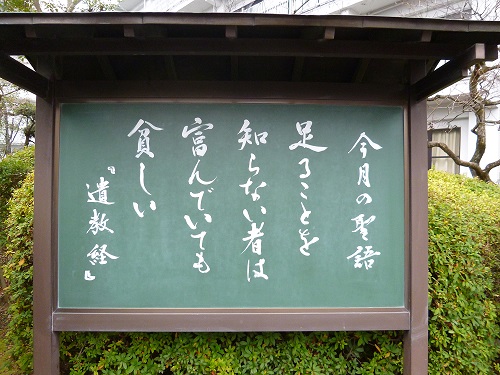 今月の聖語
足ることを
知らない者は
富んでいても
貧しい
『遺教経』